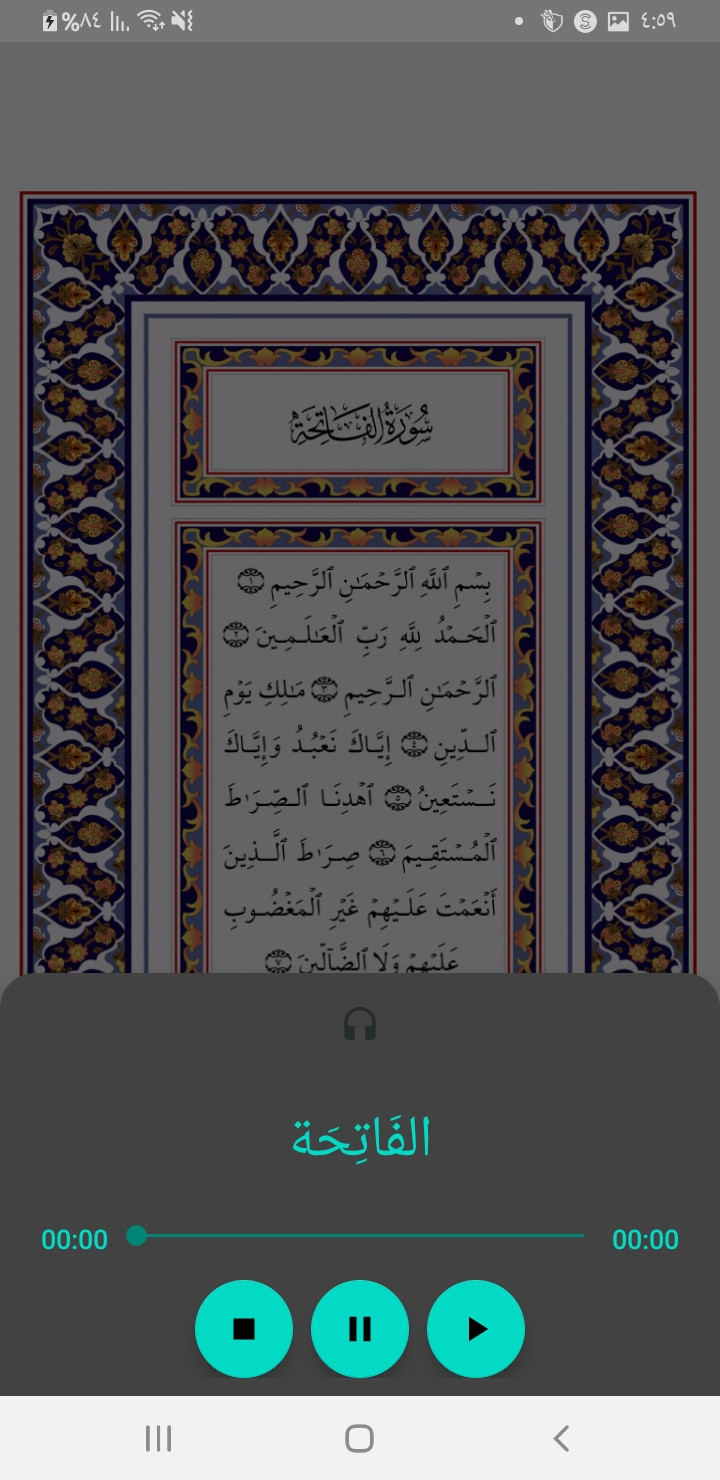 ٤:٥٩
%٨٤
سُورَةُ الْفَاتِحَةِ
بِسْمِ ٱللَّهِ ٱلرَّحْمَٰنِ ٱلرَّحِيمِ ١
ٱلْحَمْدُ لِلَّهِ رَبِّ ٱلْعَٰلَمِينَ ٢
ٱلرَّحْمَٰنِ ٱلرَّحِيمِ ٣ مَٰلِكِ يَوْمِ
ٱلدِّينِ ٤ إِيَّاكَ نَعْبُدُ وَإِيَّاكَ
نَسْتَعِينُ ٥ ٱهْدِنَا ٱلصِّرَٰطَ
ٱلْمُسْتَقِيمَ ٦ صِرَٰطَ ٱلَّذِينَ
أَنْعَمْتَ عَلَيْهِمْ غَيْرِ ٱلْمَغْضُوبِ
عَلَيْهِمْ وَلَا ٱلضَّآلِّينَ ٧
الفَاتِحَة
00:00
00:00